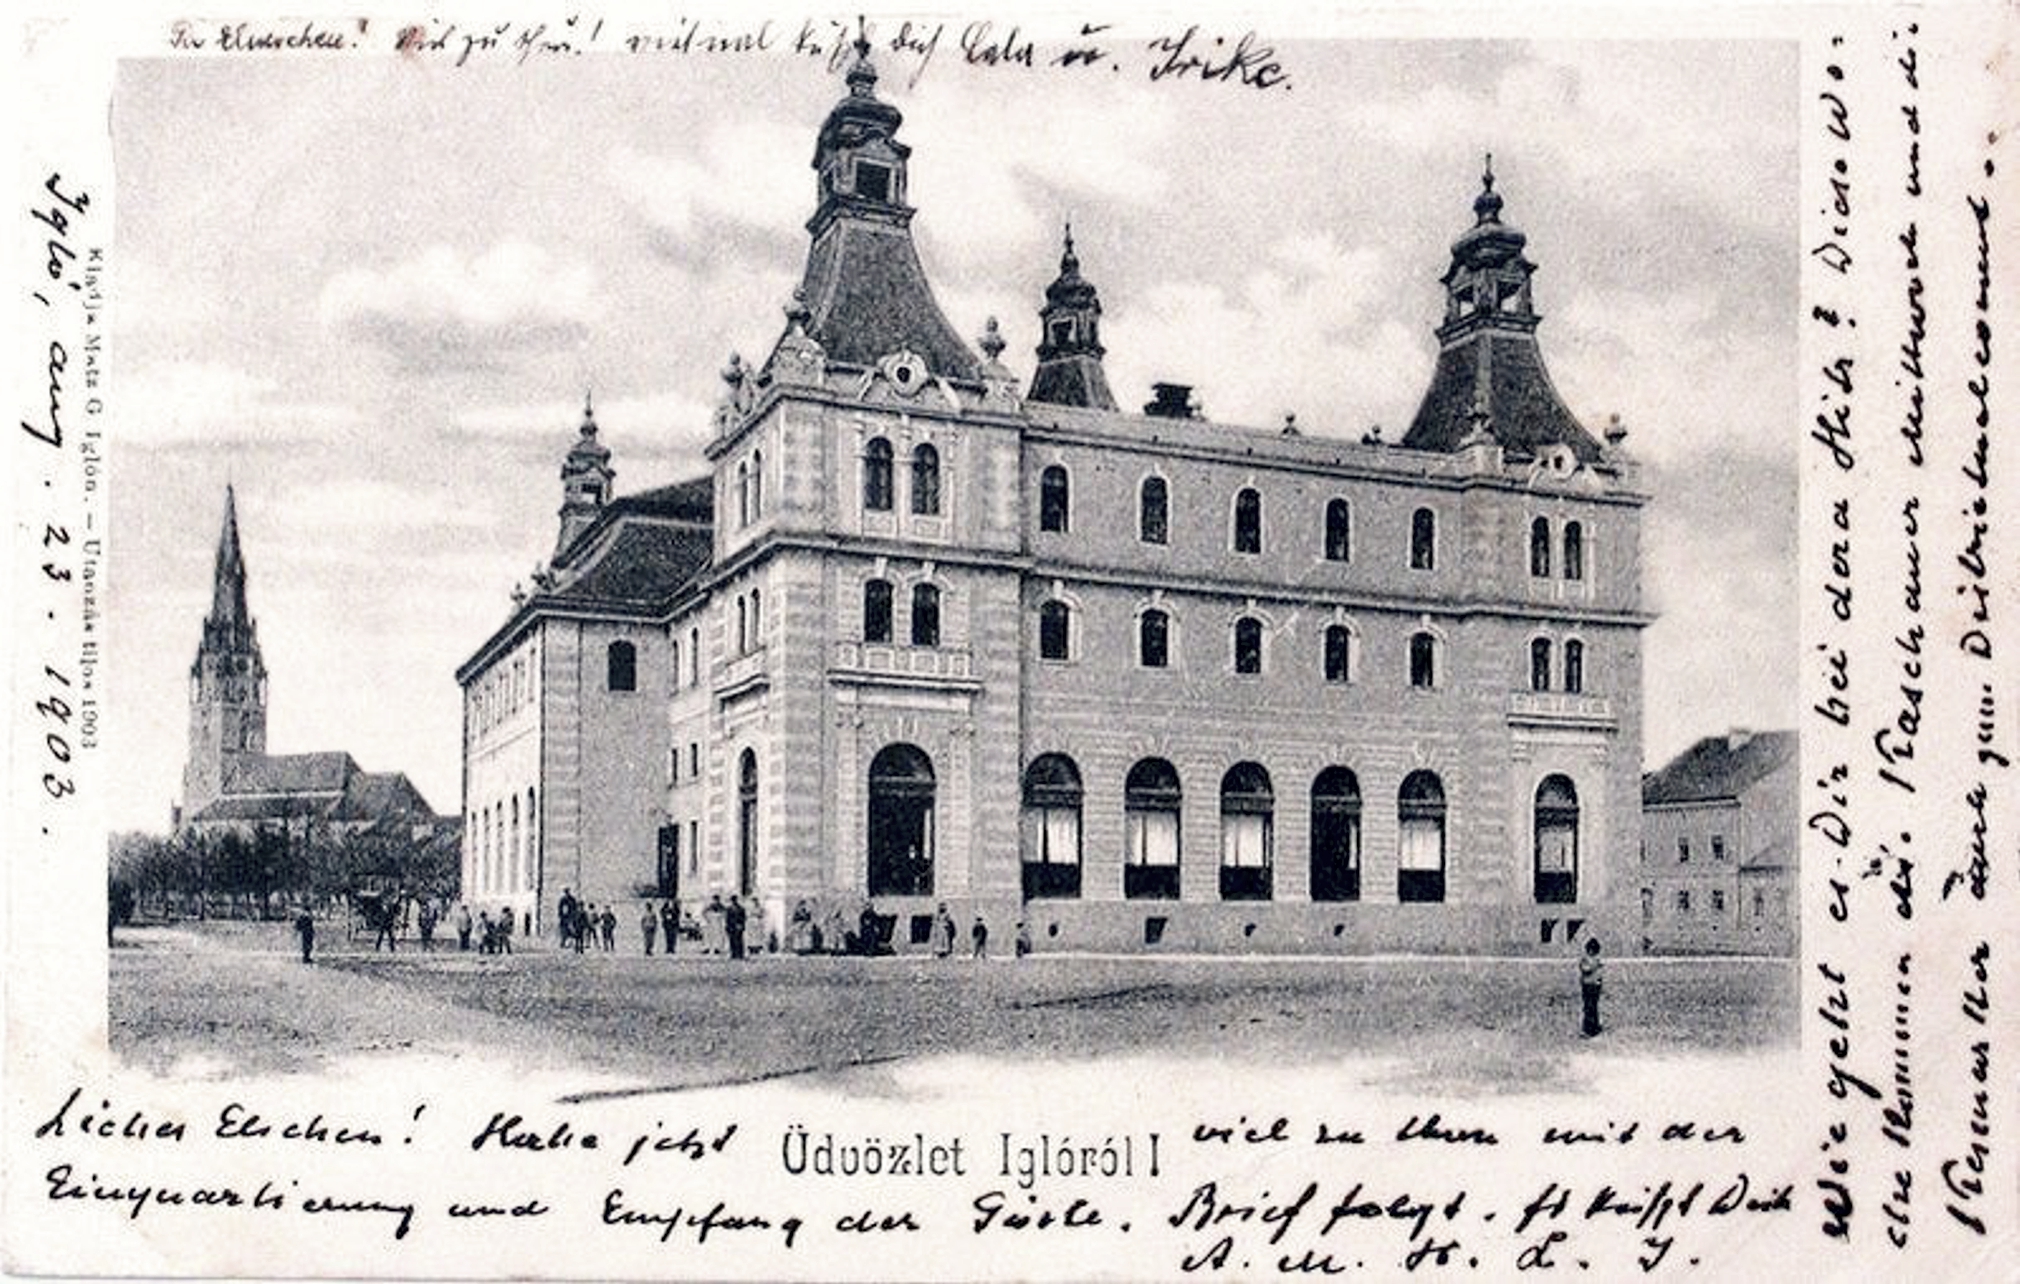 viel zu thun! vielmal küßt dich Lala u. Irike.
Igló, aug. 23. 1903.
Kiadja Matz G Iglón. – Utánzás tilos 1903
Üdvözlet Iglóról!
Liebes Elschen! Habe jetzt viel zu thun mit der
Einquartierung und Empfang der Gäste. Brief folgt. Es küsst Dich
A. M. H. L. I.
Wie geht es Dir bei der Hitz? Diese Wo-
che kommen die Kaschauer Mittwoch und die